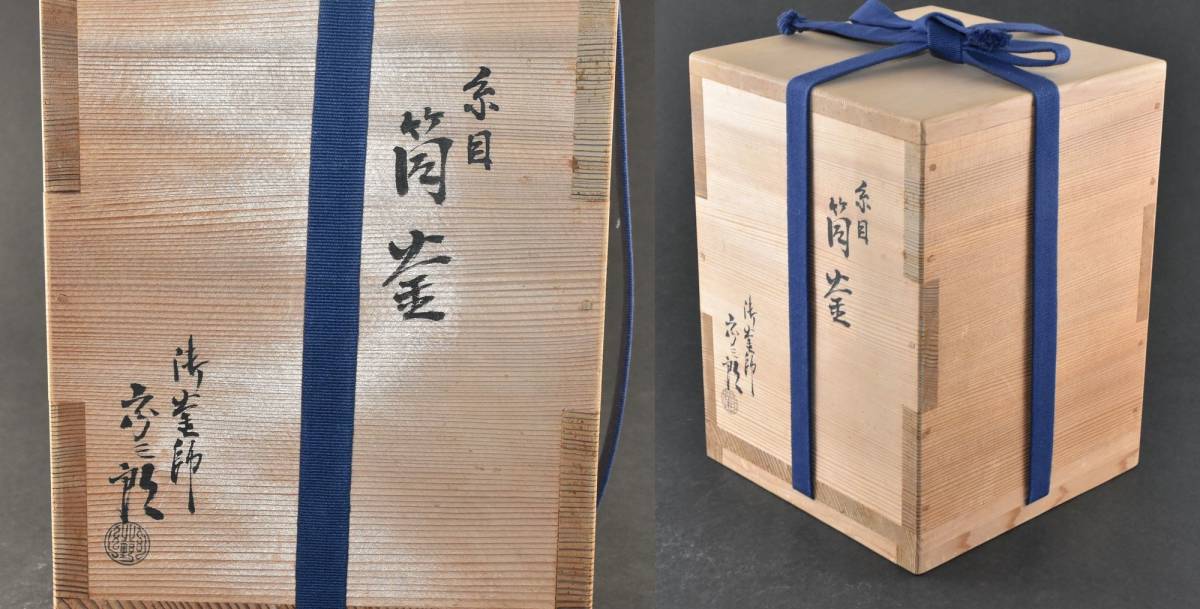 糸目
筒釜
御釜師
彦三郎
糸目
筒釜
御釜師
彦三郎